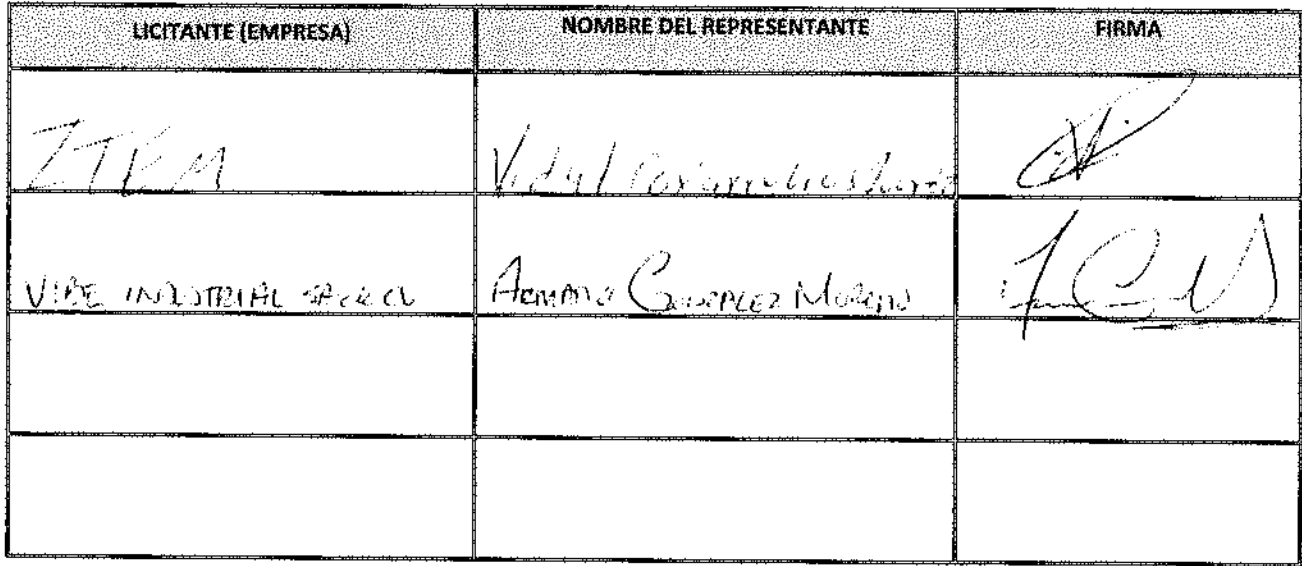 LICITANTE (EMPRESA) NOMBRE DEL REPRESENTANTE FIRMA
ITKM Vidal
VIBE INDUSTRIAL SA DE CV ARMANDO GONZALEZ MORENO